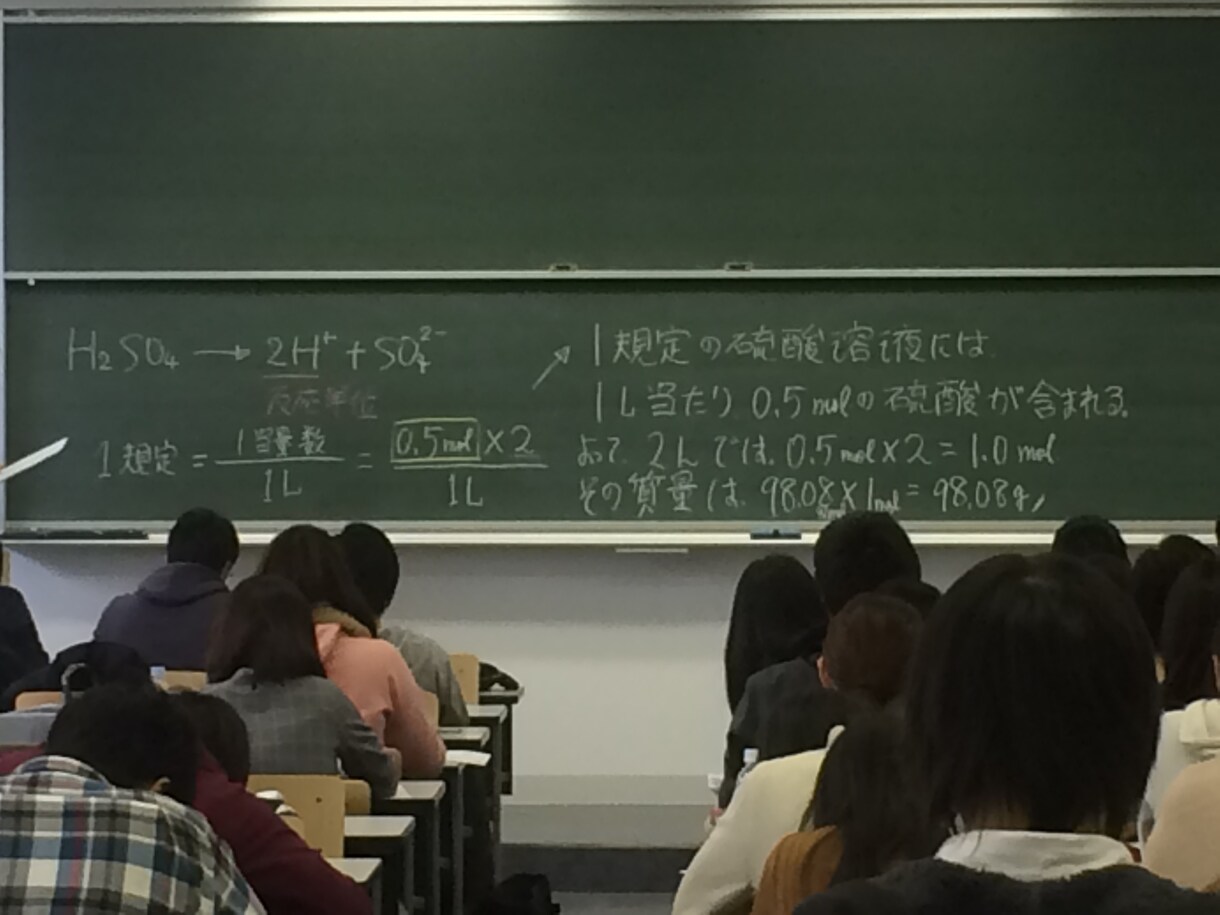 H₂SO₄ → 2H⁺ + SO₄²⁻
反応単位
1規定 = 1当量数 / 1L = 0.5mol × 2 / 1L
1規定の硫酸溶液には
1L当たり 0.5molの硫酸が含まれる。
よって、2Lでは、0.5mol×2 = 1.0mol
その質量は、98.08 × 1mol = 98.08g